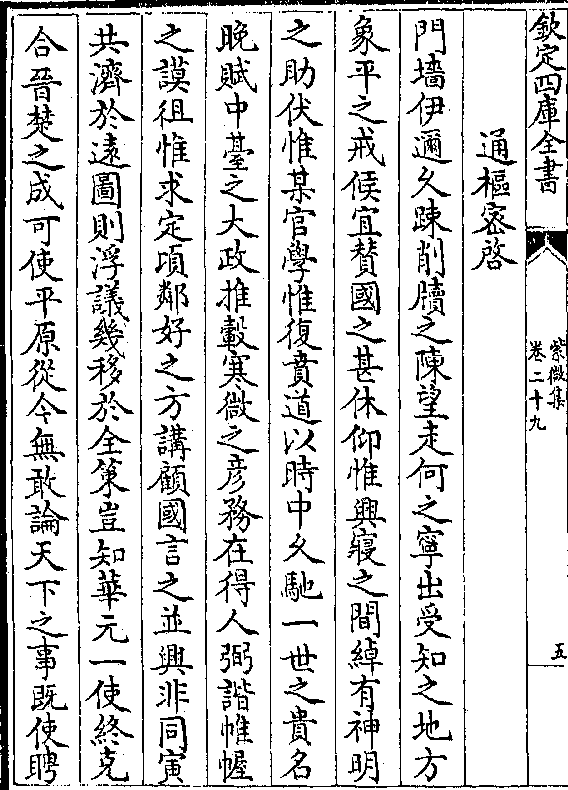 欽定四庫全書
紫微集
卷二十九
五
通樞密啓
門墻伊邇久踈削牘之陳望走何之寧出受知之地方
象平之戒候宜賛國之甚休仰惟興寢之間綽有神明
之助伏惟某官學惟復賁道以時中久馳一世之貴名
晚賦中臺之大政推轂寒微之彦務在得人弼諧帷幄
之謨徂惟求定頃鄰好之方講顧國言之並興非同寅
共濟於逺圖則浮議幾移於全䇿豈知華元一使終克
合晉楚之成可使平原從今無敢論天下之事既使聘